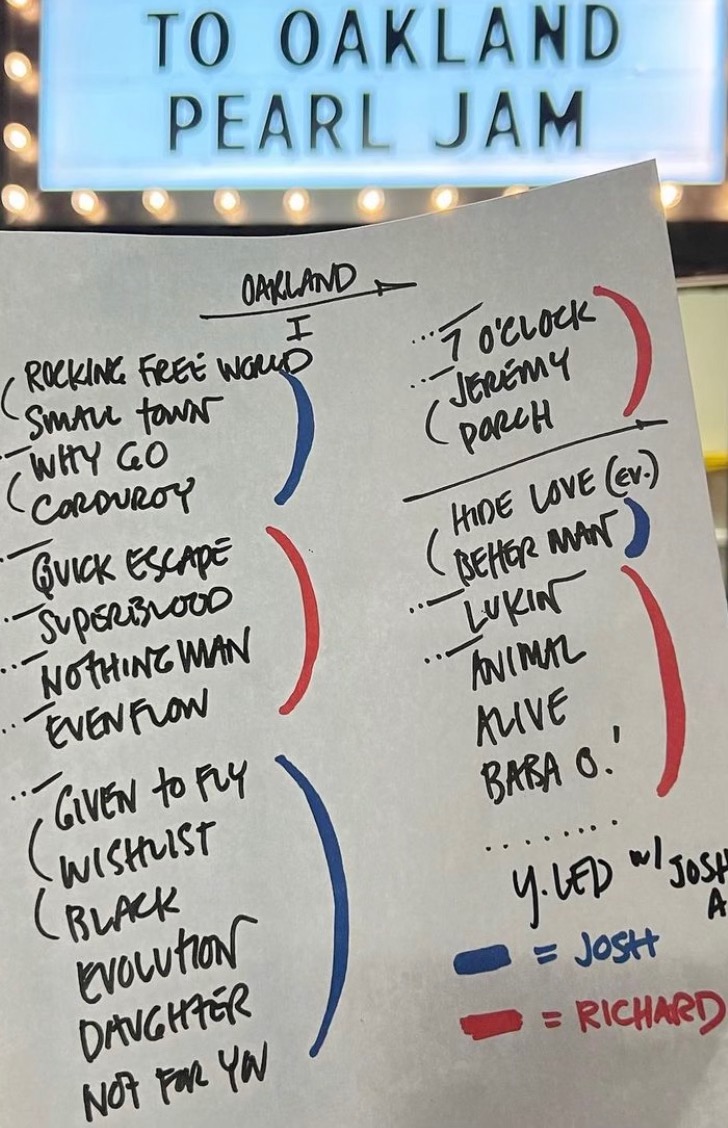 TO OAKLAND
PEARL JAM
OAKLAND
I
ROCKING FREE WORLD
SMALL TOWN
WHY GO
CORDUROY
QUICK ESCAPE
SUPERBLOOD
NOTHINGMAN
EVENFLOW
GIVEN TO FLY
WISHLIST
BLACK
EVOLUTION
DAUGHTER
NOT FOR YOU
7 O'CLOCK
JEREMY
PORCH
HIDE LOVE (EV.)
BETTER MAN
LUKIN
ANIMAL
ALIVE
BABA O.'
Y.LED W/ JOSH
A
= JOSH
= RICHARD